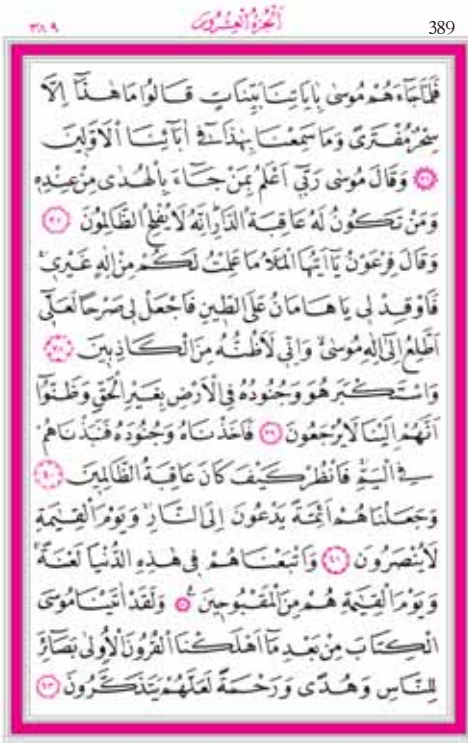 ٣٨٩ اَلْجُزْءُ الْعِشْرُونَ 389
فَلَمَّا جَٓاءَهُمْ مُوسٰى بِاٰيَاتِنَا بَيِّنَاتٍ قَالُوا مَا هٰذَٓا اِلَّا
سِحْرٌ مُفْتَرًى وَمَا سَمِعْنَا بِهٰذَا ف۪ٓي اٰبَٓائِنَا الْاَوَّل۪ينَ
﴿٣٦﴾ وَقَالَ مُوسٰى رَبّ۪ٓي اَعْلَمُ بِمَنْ جَٓاءَ بِالْهُدٰى مِنْ عِنْدِه۪
وَمَنْ تَكُونُ لَهُ عَاقِبَةُ الدَّارِۜ اِنَّهُ لَا يُفْلِحُ الظَّالِمُونَ ﴿٣٧﴾
وَقَالَ فِرْعَوْنُ يَٓا اَيُّهَا الْمَلَأُ مَا عَلِمْتُ لَكُمْ مِنْ اِلٰهٍ غَيْر۪يۚ
فَاَوْقِدْ ل۪ي يَا هَامَانُ عَلَى الطّ۪ينِ فَاجْعَلْ ل۪ي صَرْحًا لَعَلّ۪ٓي
اَطَّلِعُ اِلٰٓى اِلٰهِ مُوسٰىۙ وَاِنّ۪ي لَاَظُنُّهُ مِنَ الْكَاذِب۪ينَ ﴿٣٨﴾
وَاسْتَكْبَرَ هُوَ وَجُنُودُهُ فِي الْاَرْضِ بِغَيْرِ الْحَقِّ وَظَنُّٓوا
اَنَّهُمْ اِلَيْنَا لَا يُرْجَعُونَ ﴿٣٩﴾ فَاَخَذْنَاهُ وَجُنُودَهُ فَنَبَذْنَاهُمْ
فِي الْيَمِّۚ فَانْظُرْ كَيْفَ كَانَ عَاقِبَةُ الظَّالِم۪ينَ ﴿٤٠﴾
وَجَعَلْنَاهُمْ اَئِمَّةً يَدْعُونَ اِلَى النَّارِۚ وَيَوْمَ الْقِيٰمَةِ
لَا يُنْصَرُونَ ﴿٤١﴾ وَاَتْبَعْنَاهُمْ ف۪ي هٰذِهِ الدُّنْيَا لَعْنَةًۚ
وَيَوْمَ الْقِيٰمَةِ هُمْ مِنَ الْمَقْبُوح۪ينَ۟ ﴿٤٢﴾ وَلَقَدْ اٰتَيْنَا مُوسَى
الْكِتَابَ مِنْ بَعْدِ مَٓا اَهْلَكْنَا الْقُرُونَ الْاُو۫لٰى بَصَٓائِرَ
لِلنَّاسِ وَهُدًى وَرَحْمَةً لَعَلَّهُمْ يَتَذَكَّرُونَ ﴿٤٣﴾